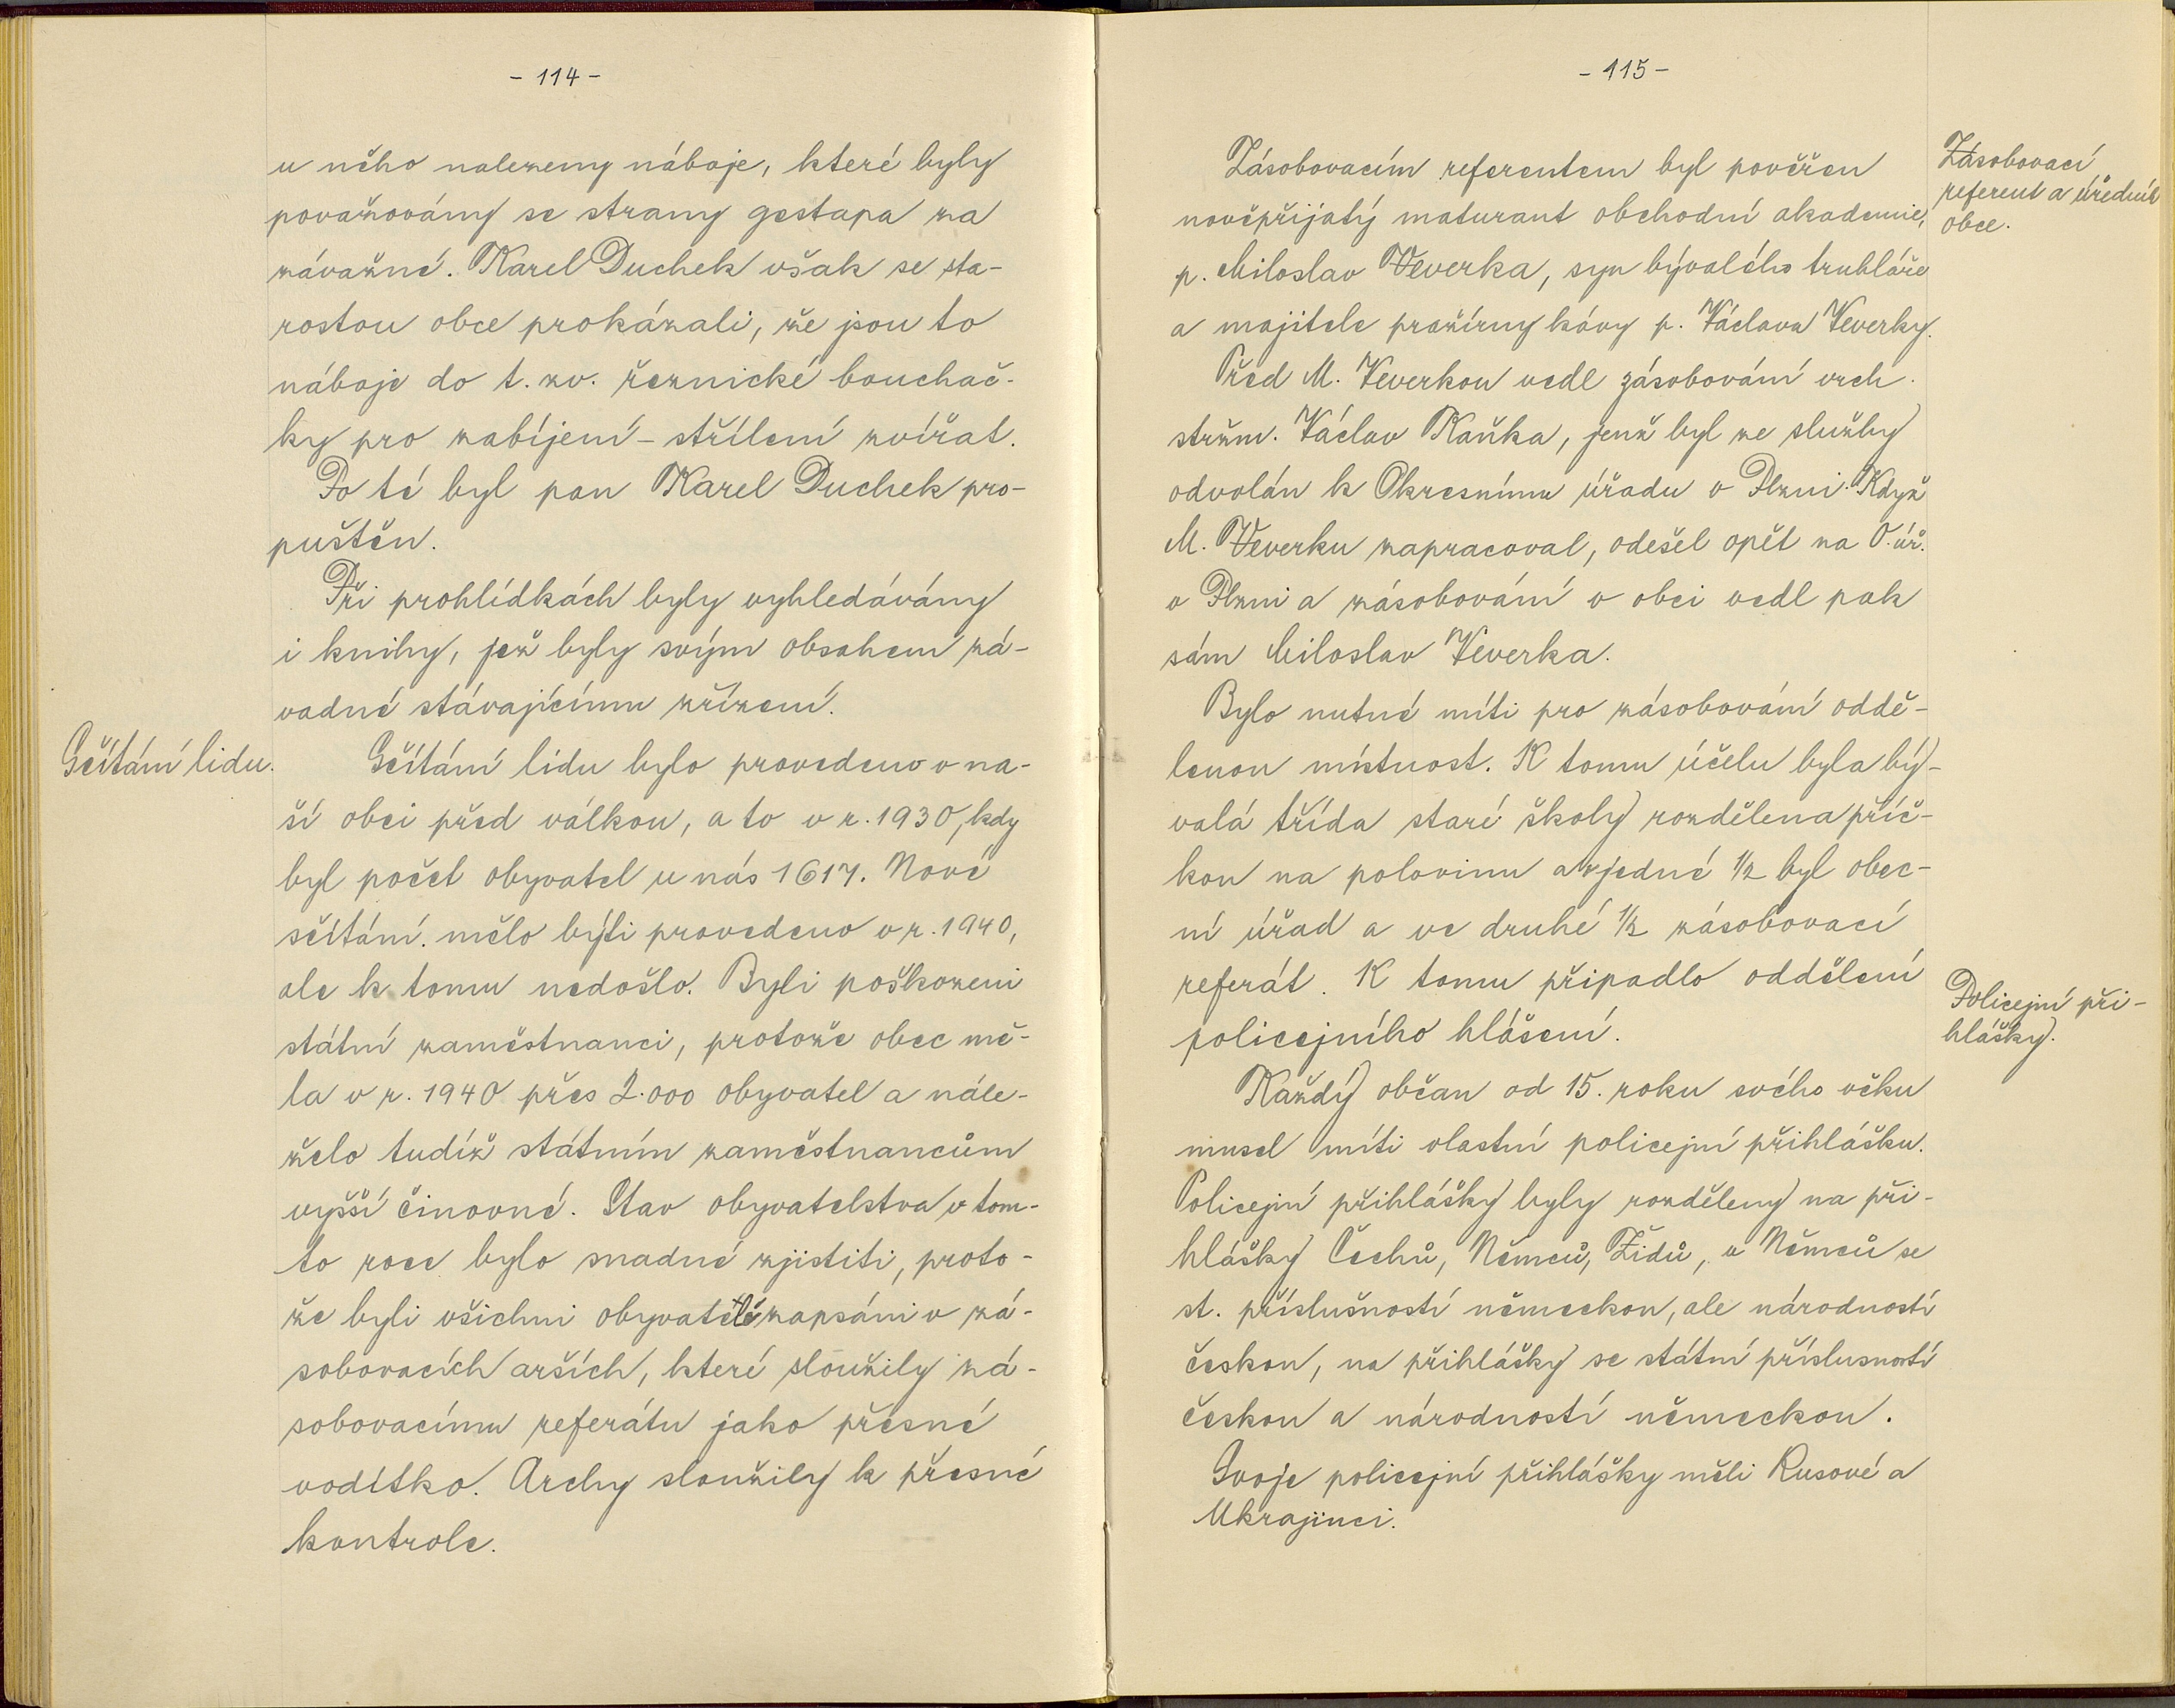 - 114 -
u něho nalezeny náboje, které byly
považovány se strany gestapa za
závažné. Karel Duchek však se sta-
rostou obce prokázali, že jsou to
náboje do t. zv. řeznické bouchač-
ky pro zabíjení - střílení zvířat.
Po té byl pan Karel Duchek pro-
puštěn.
Při prohlídkách byly vyhledávány
i knihy, jež byly svým obsahem zá-
vadné stávajícímu zřízení.
Sčítání lidu.
Sčítání lidu bylo provedeno v na-
ší obci před válkou, a to v r. 1930, kdy
byl počet obyvatel u nás 1617. Nové
sčítání mělo býti provedeno v r. 1940,
ale k tomu nedošlo. Byli poškozeni
státní zaměstnanci, protože obec mě-
la v r. 1940 přes 2.000 obyvatel a nále-
želo tudíž státním zaměstnancům
vyšší činovné. Stav obyvatelstva v tom-
to roce bylo snadné zjistiti, proto-
že byli všichni obyvatelé zapsáni v zá-
sobovacích arších, které sloužily zá-
sobovacímu referátu jako přesné
vodítko. Archy sloužily k přesné
kontrole.
- 115 -
Zásobovací
referent a úředník
obce.
Zásobovacím referentem byl pověřen
nověpřijatý maturant obchodní akademie,
p. Miloslav Veverka, syn bývalého truhláře
a majitele pražírny kávy p. Václava Veverky.
Před M. Veverkou vedl zásobování vrch.
stržm. Václav Kaňka, jenž byl ze služby
odvolán k Okresnímu úřadu v Plzni. Když
M. Veverku zapracoval, odešel opět na O. úř.
v Plzni a zásobování v obci vedl pak
sám Miloslav Veverka.
Bylo nutné míti pro zásobování oddě-
lenou místnost. K tomu účelu byla bý-
valá třída staré školy rozdělena příč-
kou na polovinu a v jedné 1/2 byl obec-
ní úřad a ve druhé 1/2 zásobovací
referát. K tomu připadlo oddělení
policejního hlášení.
Policejní při-
hlášky.
Každý občan od 15. roku svého věku
musel míti vlastní policejní přihlášku.
Policejní přihlášky byly rozděleny na při-
hlášky Čechů, Němců, Židů, u Němců se
st. příslušností německou, ale národností
českou, na přihlášky se státní příslusností
českou a národností německou.
Svoje policejní přihlášky měli Rusové a
Ukrajinci.